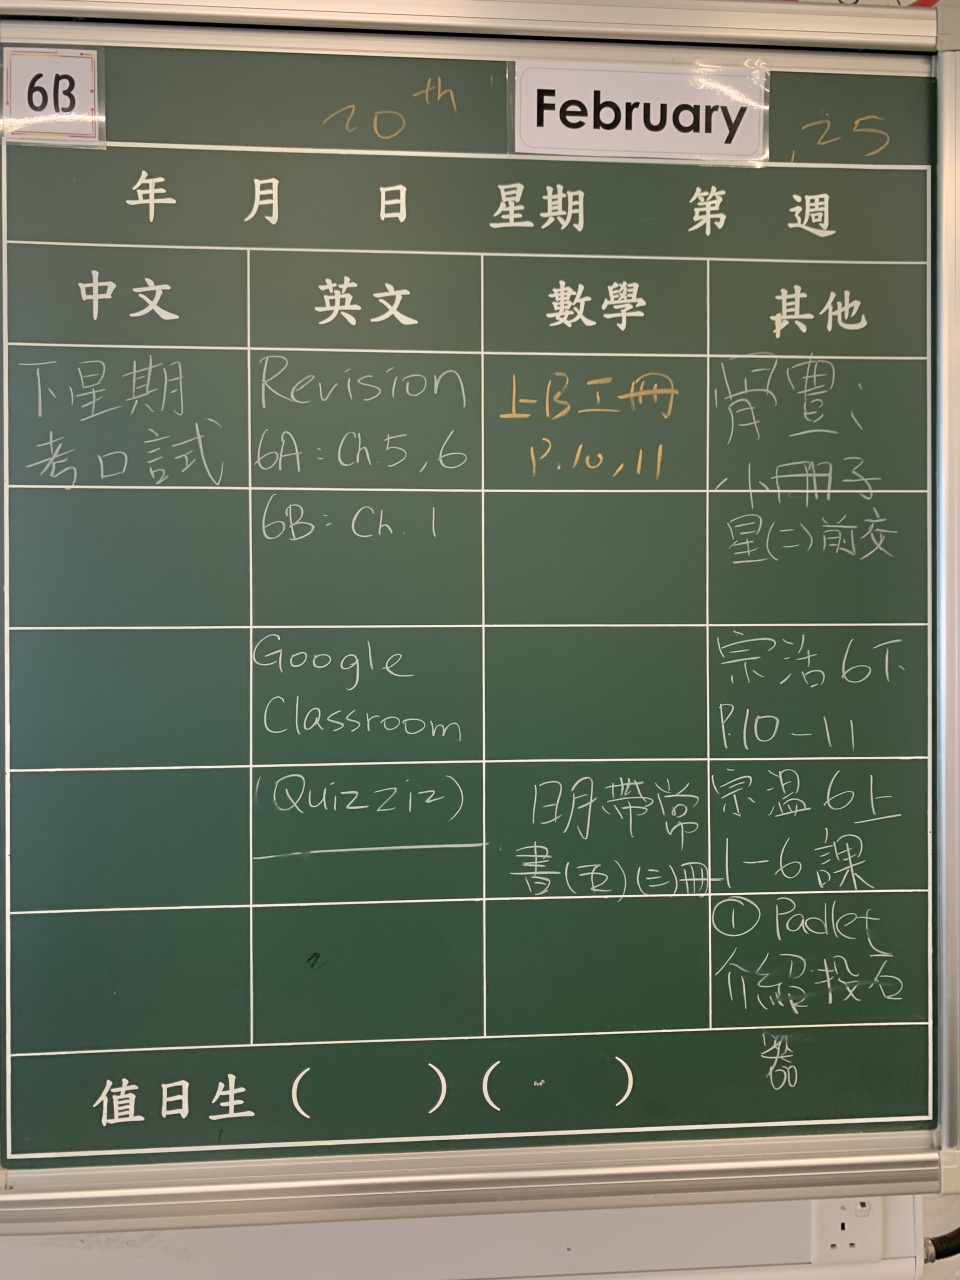 6B
20th February, 25
年 月 日 星期 第 週
中文 英文 數學 其他
下星期
考口試
Revision
6A: Ch.5, 6
6B: Ch. 1
Google
Classroom
(Quizziz)
上B工冊
P.10, 11
明帶常
書(五)(三)冊
小冊子
星(二)前交
宗活6下
P.10-11
宗溫6上
1-6課
① Padlet
介紹投石
器
值日生 ( ) ( )